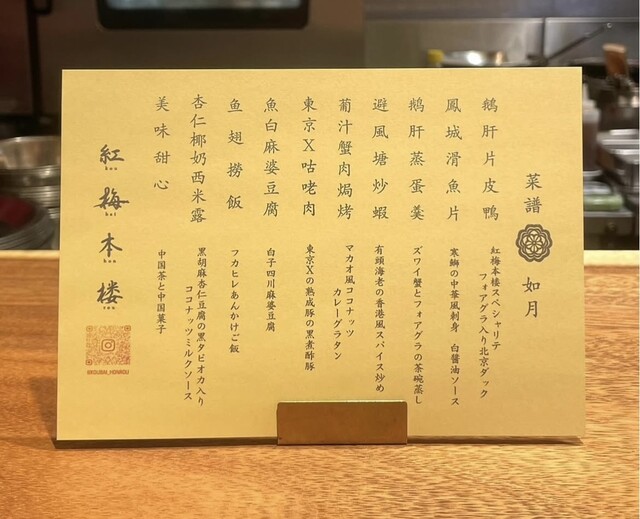 菜譜 如月
鵝肝片皮鴨
紅梅本楼スペシャリテ
フォアグラ入り北京ダック
鳳城滑魚片
寒鰤の中華風刺身 白醤油ソース
鹅肝蒸蛋羹
ズワイ蟹とフォアグラの茶碗蒸し
避風塘炒蝦
有頭海老の香港風スパイス炒め
葡汁蟹肉焗烤
マカオ風ココナッツ
カレーグラタン
東京X咕咾肉
東京Xの熟成豚の黒煮酢豚
魚白麻婆豆腐
白子四川麻婆豆腐
鱼翅撈飯
フカヒレあんかけご飯
杏仁椰奶西米露
黒胡麻杏仁豆腐の黒タピオカ入り
ココナッツミルクソース
美味甜心
中国茶と中国菓子
紅梅本楼
kou bai hon rou
@KOUBAI_HONROU